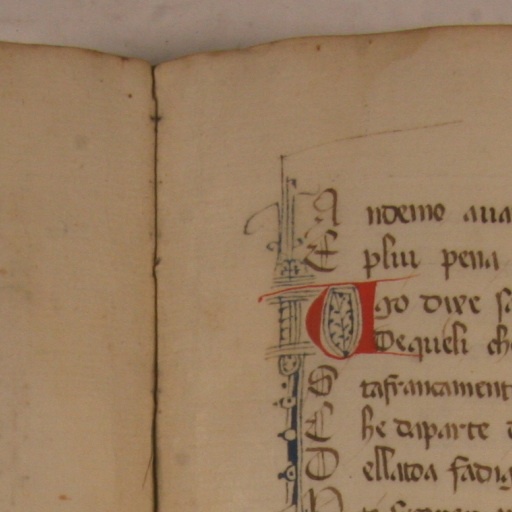 Andemo aua
E plui pena
Ago dire s
De queli ch
S tafrancament
E he daparte d
D ellatoa fadig